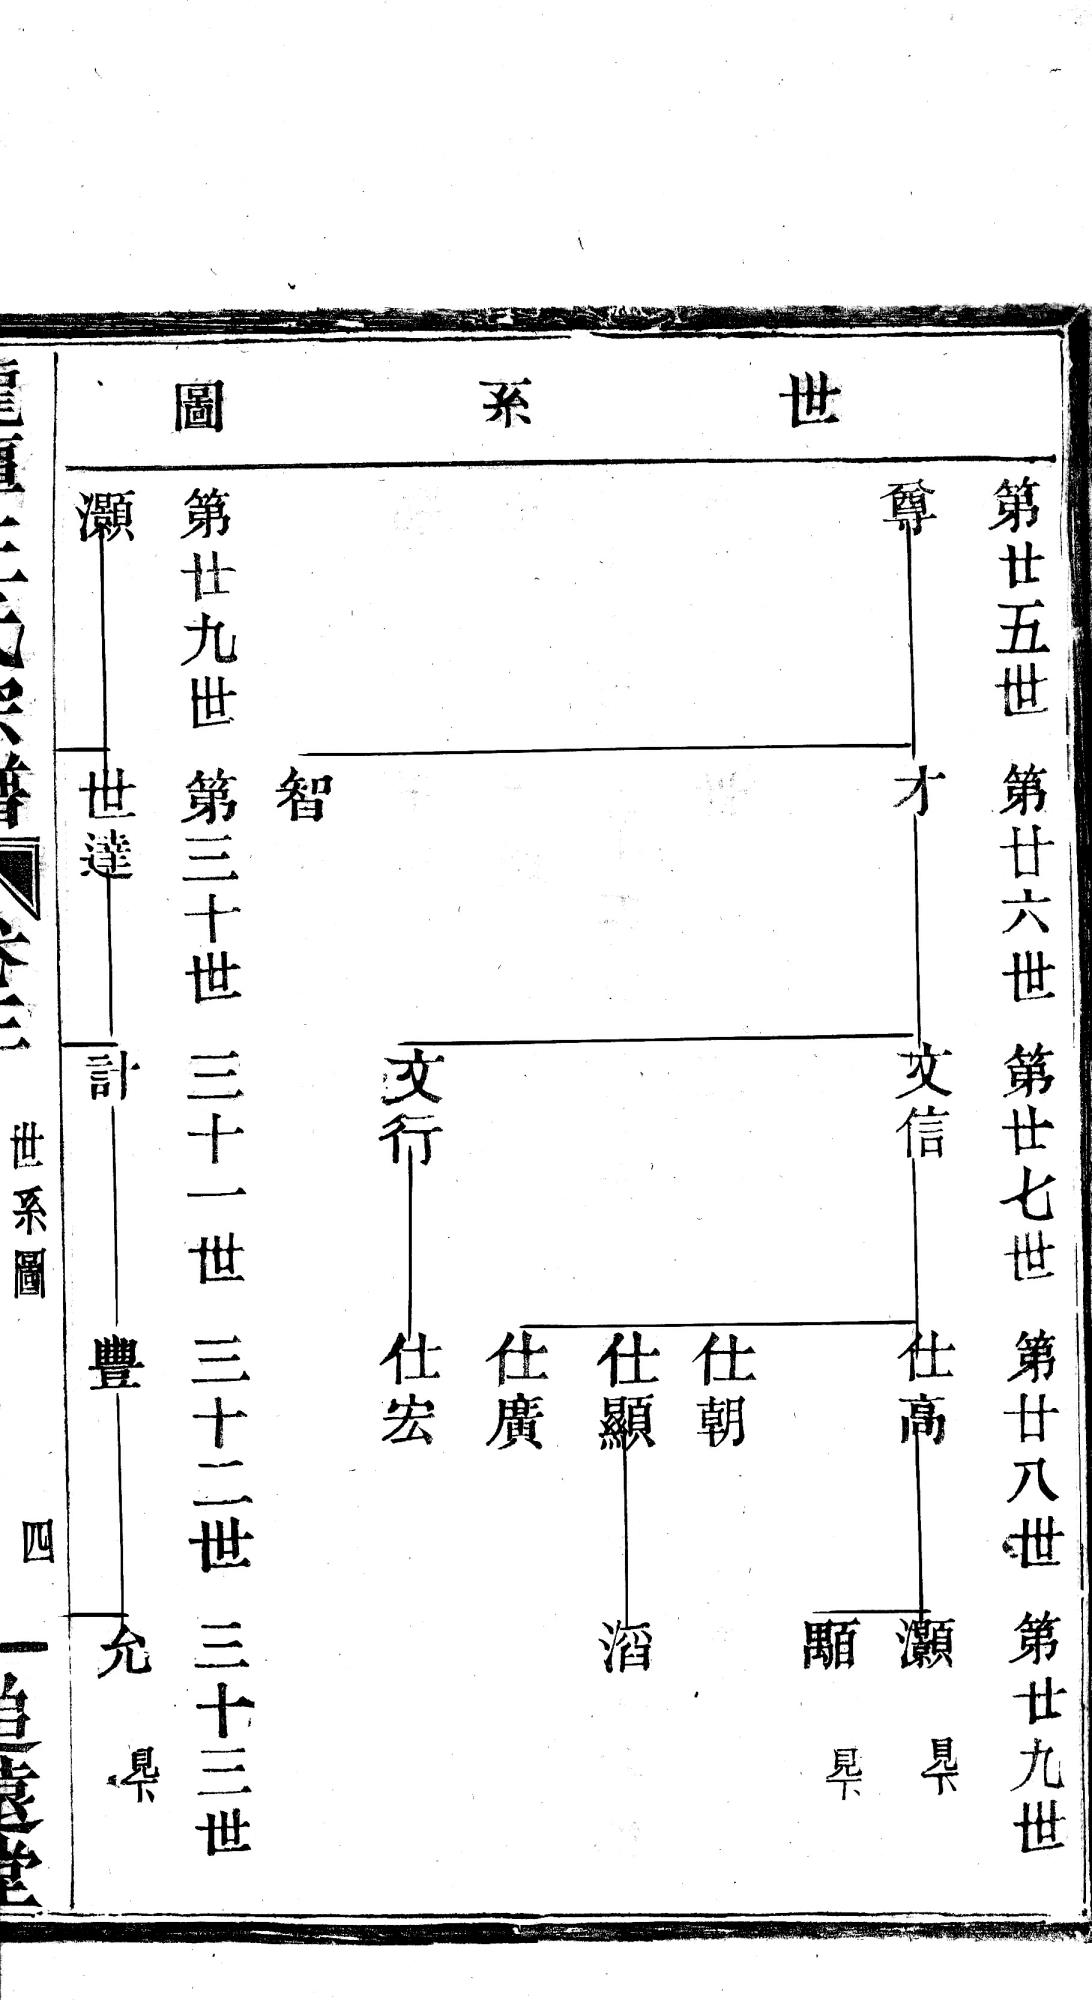 世系圖
第廿五世
尊
第廿六世
才
智
第廿七世
文信
文行
第廿八世
仕高
仕朝
仕顯
仕廣
仕宏
第廿九世
灝 見下
顒 見下
滔
第廿九世
灝
第三十世
世達
三十一世
計
三十二世
豐
三十三世
允 見下
王氏宗譜
卷三
世系圖
四
追遠堂